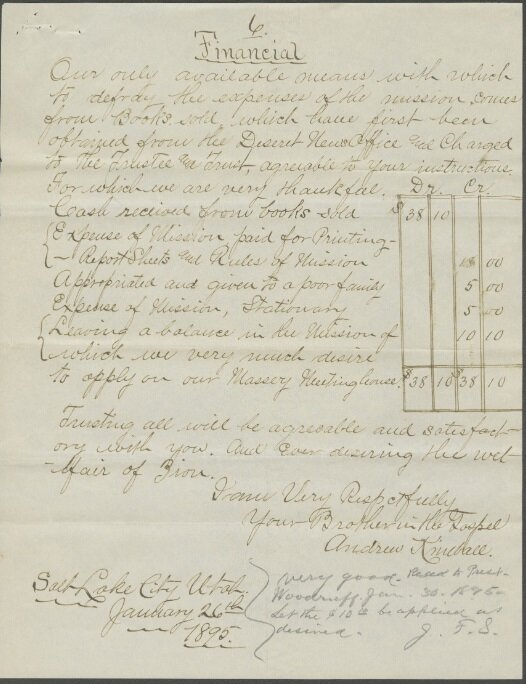 6.
Financial
Our only available means with which
to defray the expenses of the mission, comes
from Books sold, which have first been
obtained from the Deseret News Office and Charged
to the Trustee in Trust, agreeable to your instructions,
For which we are very thankful. Dr. Cr.
Cash received from books sold $38 10
Expense of Mission paid for Printing-
- Report Sheets and Rules of Mission 18 00
Appropriated and given to a poor family 5 00
Expense of Mission, Stationary 5 00
Leaving a balance in the Mission of 10 10
which we very much desire
to apply on our Massey Meetinghouse. $38 10 $38 10
Trusting all will be agreeable and satisfact-
ory with you. And Ever desiring the wel-
-fair of Zion.
I am Very Respectfully
Your Brother in the Gospel
Andrew Kimball.
Salt Lake City Utah
January 26th
1895.
very good. Read to Prest.
Woodruff. Jan. 30. 1895-
Let the $10 10 be applied as
desired. J. F. S.